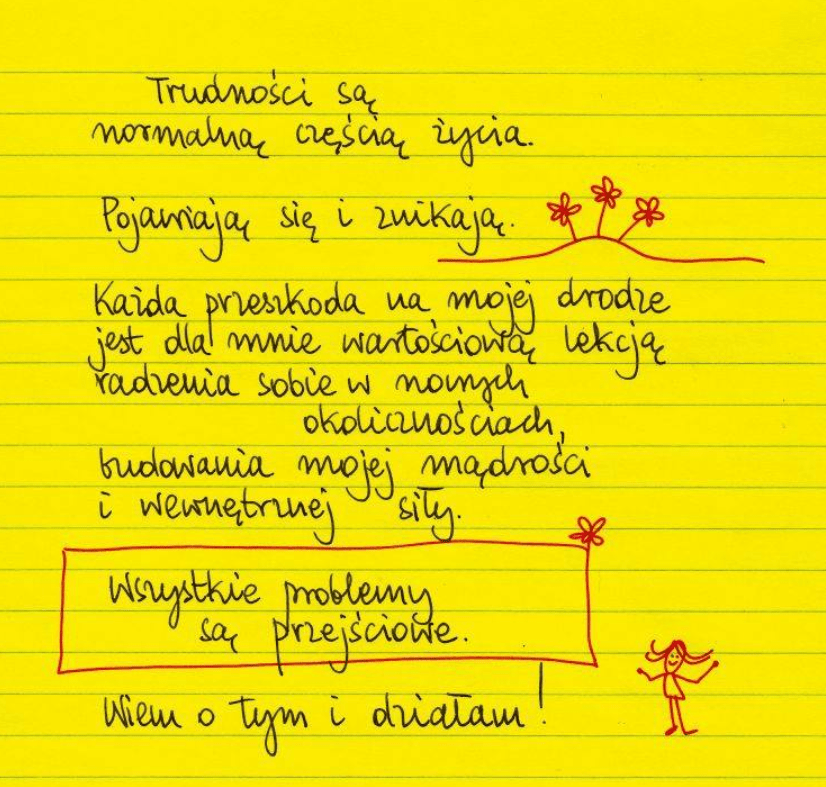 Trudności są
normalną częścią życia.
Pojawiają się i znikają.
Każda przeszkoda na mojej drodze
jest dla mnie wartościową lekcją
radzenia sobie w nowych
okolicznościach,
budowania mojej mądrości
i wewnętrznej siły.
Wszystkie problemy
są przejściowe.
Wiem o tym i działam!